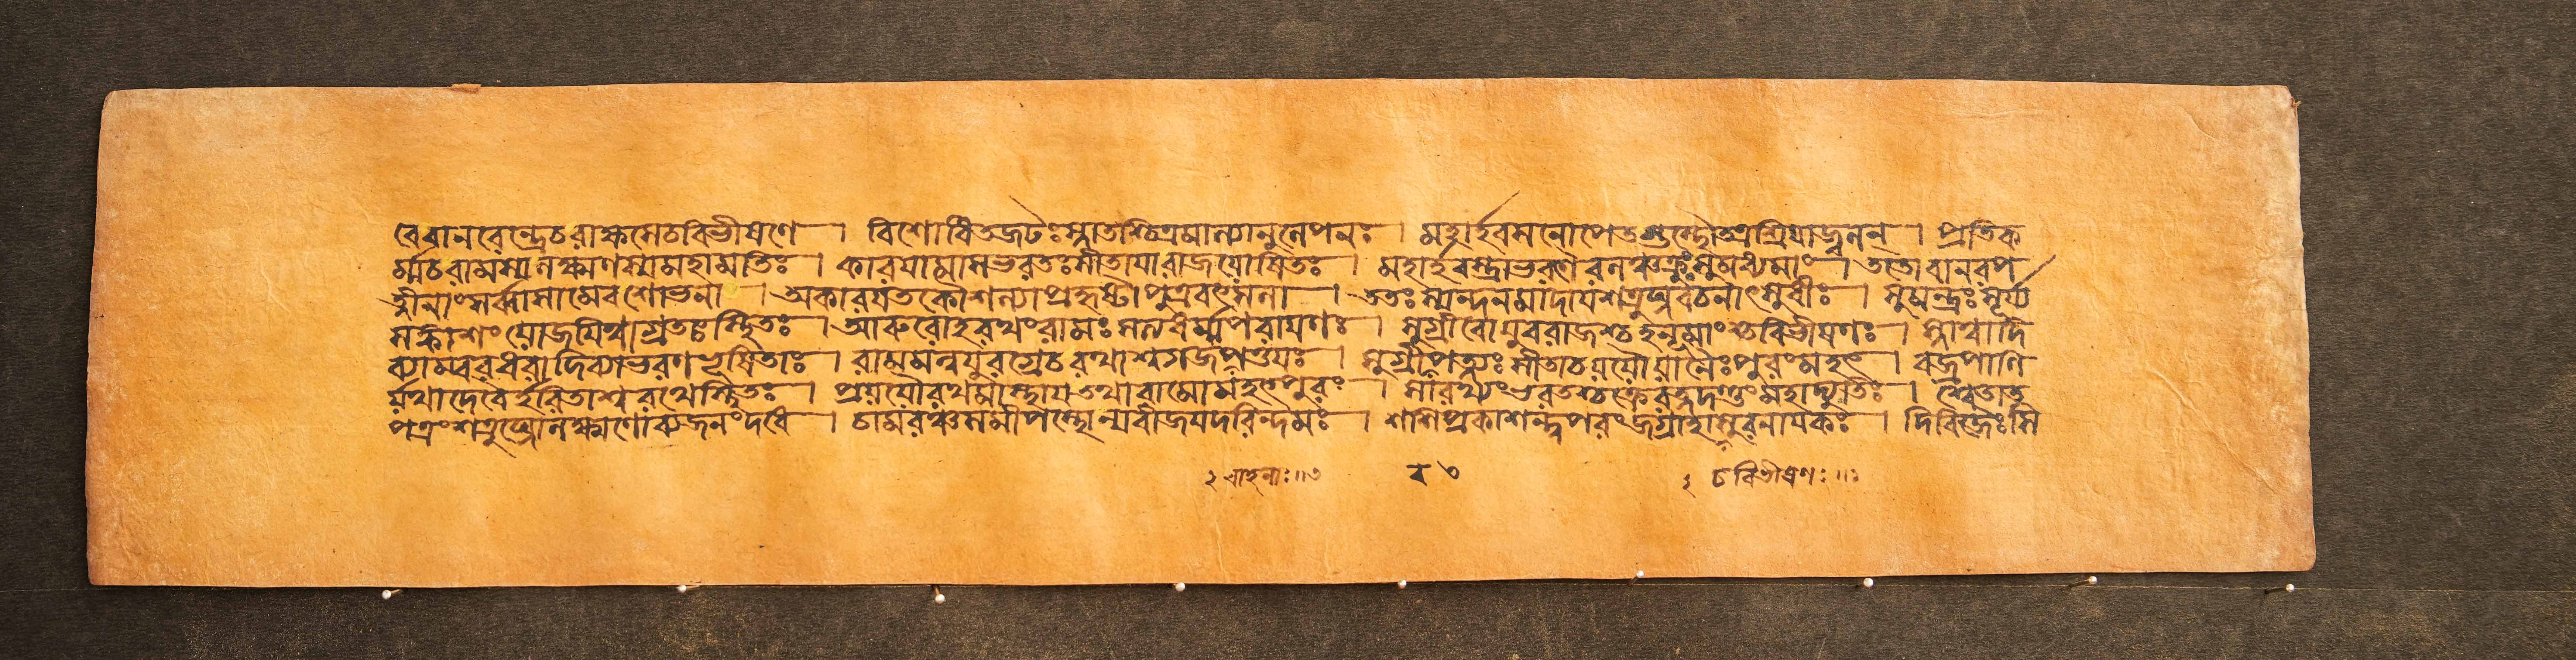 রেবানরেন্দ্রেচরাক্ষসেচবিভীষণে । বিশোধিতজটঃস্নাতশ্চিত্রমাল্যানুলেপনঃ । মহার্হবসনোপেতস্তস্থৌতত্রশ্রিয়াজ্বলন্ । প্রতিক
র্ম্মচরামস্যলক্ষ্মণস্যমহামতিঃ । কারয়ামাসভরতঃসীতায়ারাজযোষিতঃ । মহার্হবস্ত্রাভরণৈরলঞ্চক্রুঃসুমধ্যমাং । ততোবানরপ
ত্নীনাংসর্ব্বাসামেবশোভনা । অকারয়তকৌশল্যাপ্রহৃষ্টাপুত্রবৎসলা । ততঃস্যন্দনমাদায়শত্রুঘ্নবচনাৎসুধীঃ । সুমন্ত্রঃসূর্য্য
সঙ্কাশংযোজয়িত্বাগ্রতঃস্থিতঃ । আরুরোহরথংরামঃসত্যধর্ম্মপরায়ণঃ । সুগ্রীবোযুবরাজশ্চহনূমাংশ্চবিভীষণঃ । স্নাত্বাদি
ব্যাম্বরধরাদিব্যাভরণভূষিতাঃ । রামমন্বযুরগ্রেচরথাশ্বগজপত্তয়ঃ । সুগ্রীপত্ন্যঃসীতাচযযৌযানৈঃপুরংমহৎ । বজ্রপাণি
র্যথাদেবৈর্হরিতাশ্বরথেস্থিতঃ । প্রযযৌরথমাস্থায়তথারামোমহৎপুরং । সারথ্যংভরতশ্চক্রেরত্নদণ্ডংমহাদ্যুতিঃ । শ্বেতাত
পত্রংশত্রুঘ্নোলক্ষ্মণোব্যজনংদধে । চামরঞ্চসমীপস্থোন্যবীজয়দরিন্দমঃ । শশিপ্রকাশন্ত্বপরংজগ্রাহাসুরনায়কঃ । দিবিস্থৈঃসি
চবিভীষণঃ॥